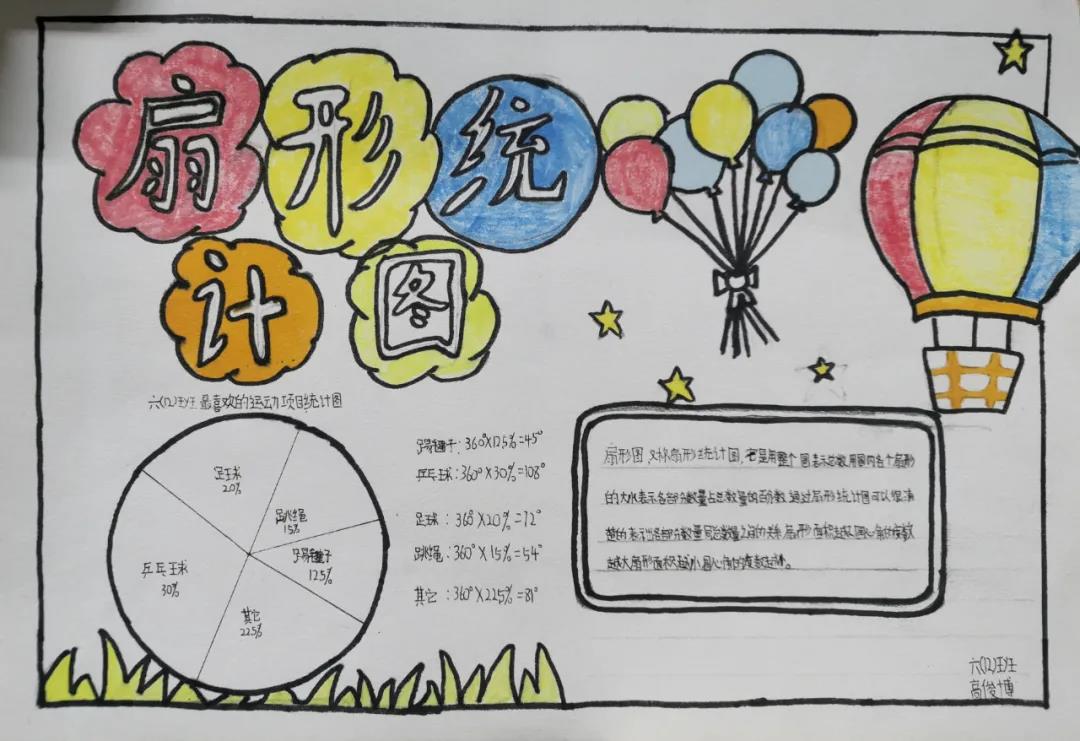 扇形统
计图
六(12)班最喜欢的运动项目统计图
足球
20%
跳绳
15%
踢毽子
12.5%
乒乓球
30%
其它
22.5%
踢毽子:360°×12.5%=45°
乒乓球:360°×30%=108°
足球:360°×20%=72°
跳绳:360°×15%=54°
其它:360°×22.5%=81°
扇形图,又称扇形统计图,它是用整个圆表示总数,用圆内各个扇形
的大小表示各部分数量占总数量的百分数,通过扇形统计图可以很清
楚的表示出各部分数量同总数量之间的关系,扇形面积越大,圆心角的度数
越大扇形面积越小圆心角的度数越
六(12)班
高俊博